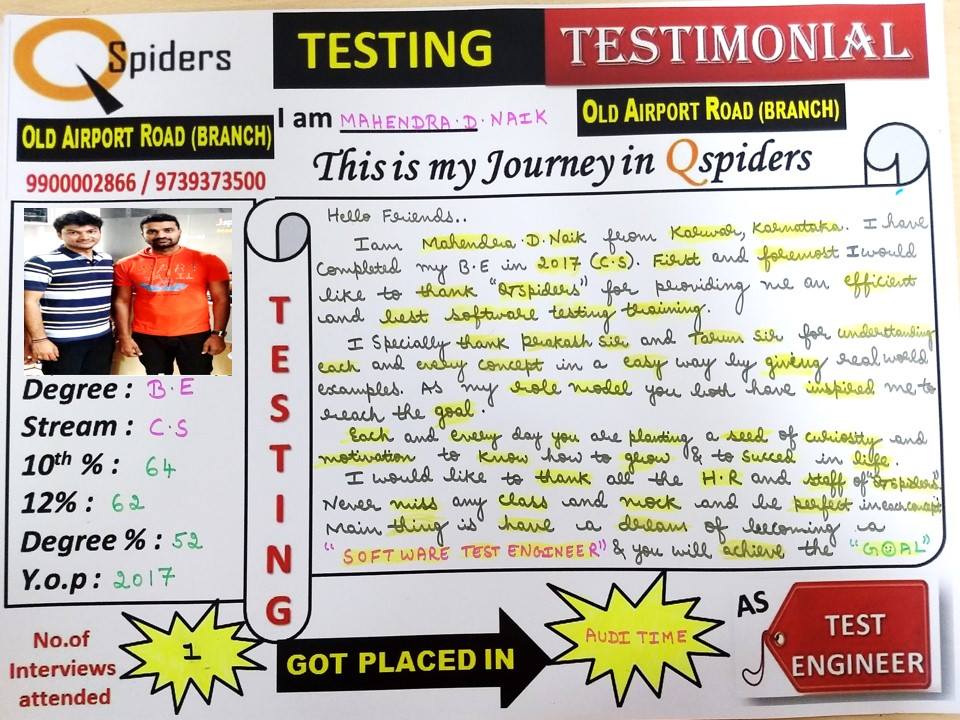 QSpiders
TESTING
TESTIMONIAL
OLD AIRPORT ROAD (BRANCH)
9900002866 / 9739373500
I am MAHENDRA.D.NAIK
OLD AIRPORT ROAD (BRANCH)
This is my Journey in Qspiders
Hello Friends..
I am Mahendra.D.Naik from Karwar, Karnataka. I have
completed my B.E in 2017 (C.S). First and foremost I would
like to thank "QSpiders" for providing me an efficient
and best software testing training.
I Specially thank prakash sir and Tarun sir for understanding
each and every concept in a easy way by giving real world
examples. As my role model you both have inspired me to
reach the goal.
Each and every day you are planting a seed of curiostty and
motivation to know how to grow & to succed in life.
I would like to thank all the H.R and staff of "QSpiders"
Never miss any class and mock and be perfect in each concept
Main thing is have a dream of becoming a
"SOFTWARE TEST ENGINEER" & you will achieve the "GOAL"
TESTING
Degree : B.E
Stream : C.S
10th % : 64
12% : 62
Degree % : 52
Y.o.p : 2017
No.of
Interviews
attended
1
GOT PLACED IN
AUDITIME
AS
TEST
ENGINEER